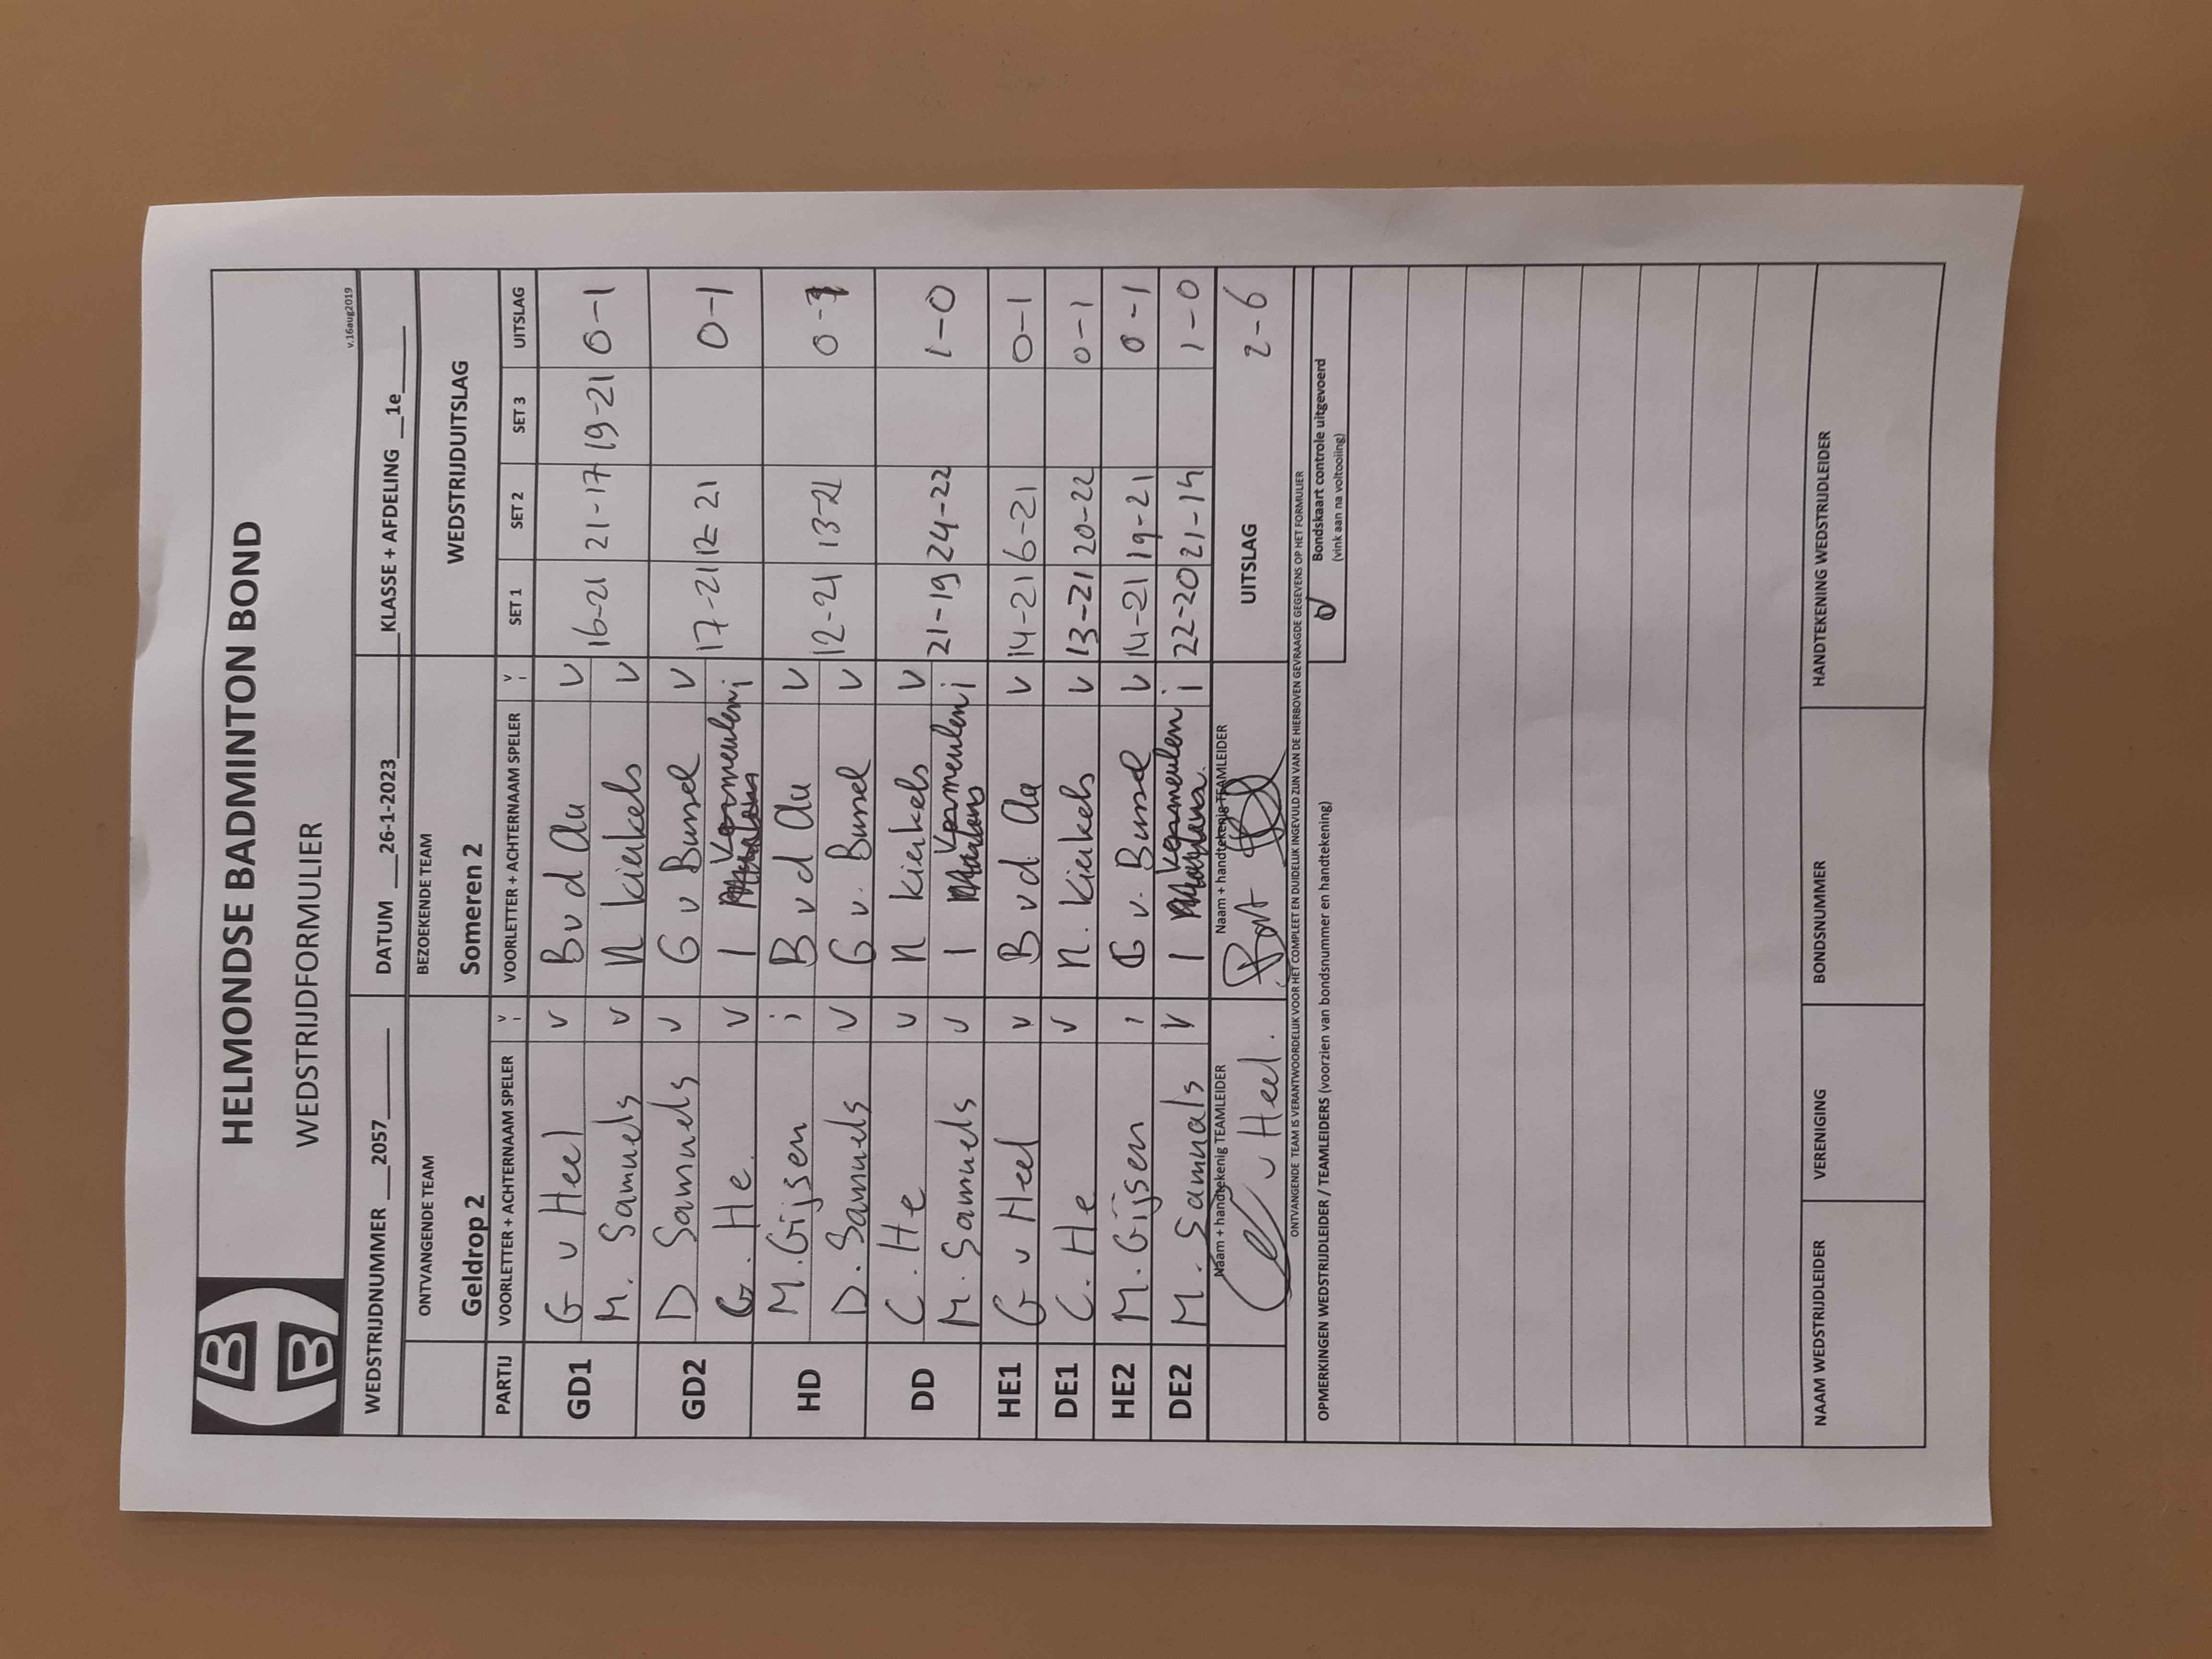 HELMONDSE BADMINTON BOND
WEDSTRIJDFORMULIER
v.16aug2019
WEDSTRIJDNUMMER __2057______ DATUM __26-1-2023__________KLASSE + AFDELING __1e______
ONTVANGENDE TEAM BEZOEKENDE TEAM WEDSTRIJDUITSLAG
Geldrop 2 Someren 2
PARTIJ VOORLETTER + ACHTERNAAM SPELER V i VOORLETTER + ACHTERNAAM SPELER V i SET 1 SET 2 SET 3 UITSLAG
GD1 G v Heel v B v d Aa v 16-21 21-17 19-21 0-1
M. Samuels v N kierkels v
GD2 D Samuels v G v Bussel v 17-21 12-21 0-1
G. He. v I Vermeulen i
HD M. Gijsen i B v d Aa v 12-21 13-21 0-1
D. Samuels v G v. Bussel v
DD C. He v N kierkels v 21-19 24-22 1-0
M. Samuels v I Vermeulen i
HE1 G v Heel v B v d. Aa v 14-21 6-21 0-1
DE1 C. He v N. kierkels v 13-21 20-22 0-1
HE2 M. Gijsen i G v. Bussel v 14-21 19-21 0-1
DE2 M. Samuals v I Vermeulen i 22-20 21-14 1-0
Naam + handtekenig TEAMLEIDER Naam + handtekenig TEAMLEIDER UITSLAG 2-6
v Heel. Bart
ONTVANGENDE TEAM IS VERANTWOORDELIJK VOOR HET COMPLEET EN DUIDELIJK INGEVULD ZIJN VAN DE HIERBOVEN GEVRAAGDE GEGEVENS OP HET FORMULIER
OPMERKINGEN WEDSTRIJDLEIDER / TEAMLEIDERS (voorzien van bondsnummer en handtekening) Bondskaart controle uitgevoerd
(vink aan na voltooiing)
NAAM WEDSTRIJDLEIDER VERENIGING BONDSNUMMER HANDTEKENING WEDSTRIJDLEIDER